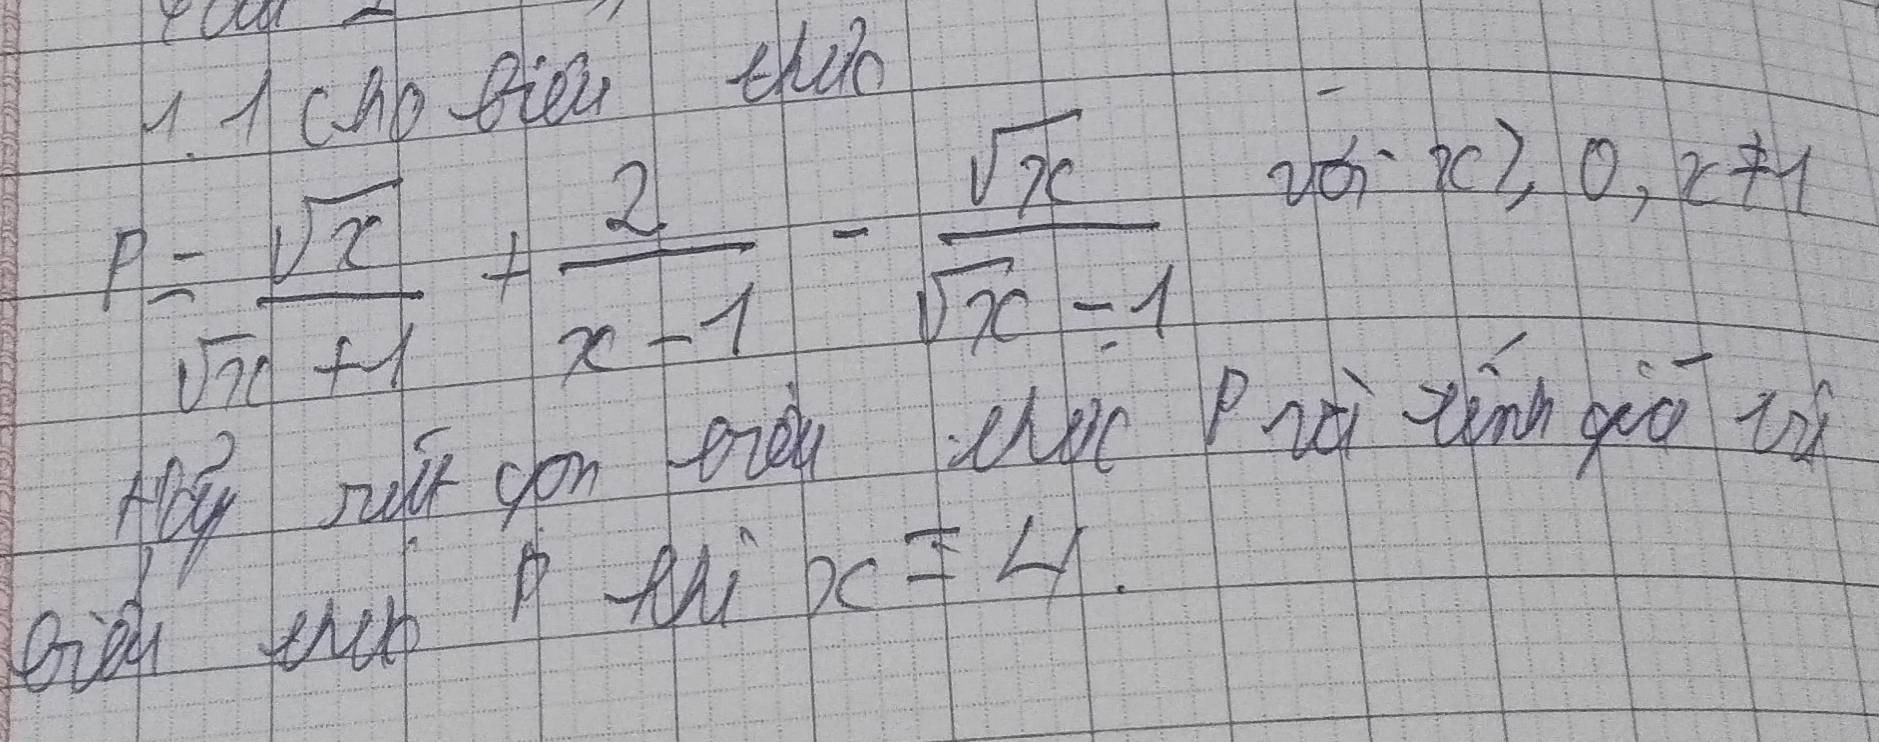 1.1 cho biểu thức
P = \frac{\sqrt{x}}{\sqrt{x}+1} + \frac{2}{x-1} - \frac{\sqrt{x}}{\sqrt{x}-1} với x ≥ 0, x ≠ 1
Hãy rút gọn biểu thức P rồi tính giá trị
biểu thức P khi x = 4.